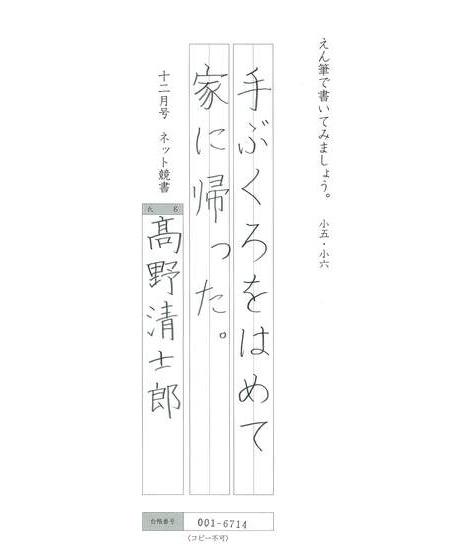 えん筆で書いてみましょう。 小五・小六
手ぶくろをはめて
家に帰った。
十二月号 ネット競書
氏名
髙野清士郎
台帳番号 001-6714
(コピー不可)